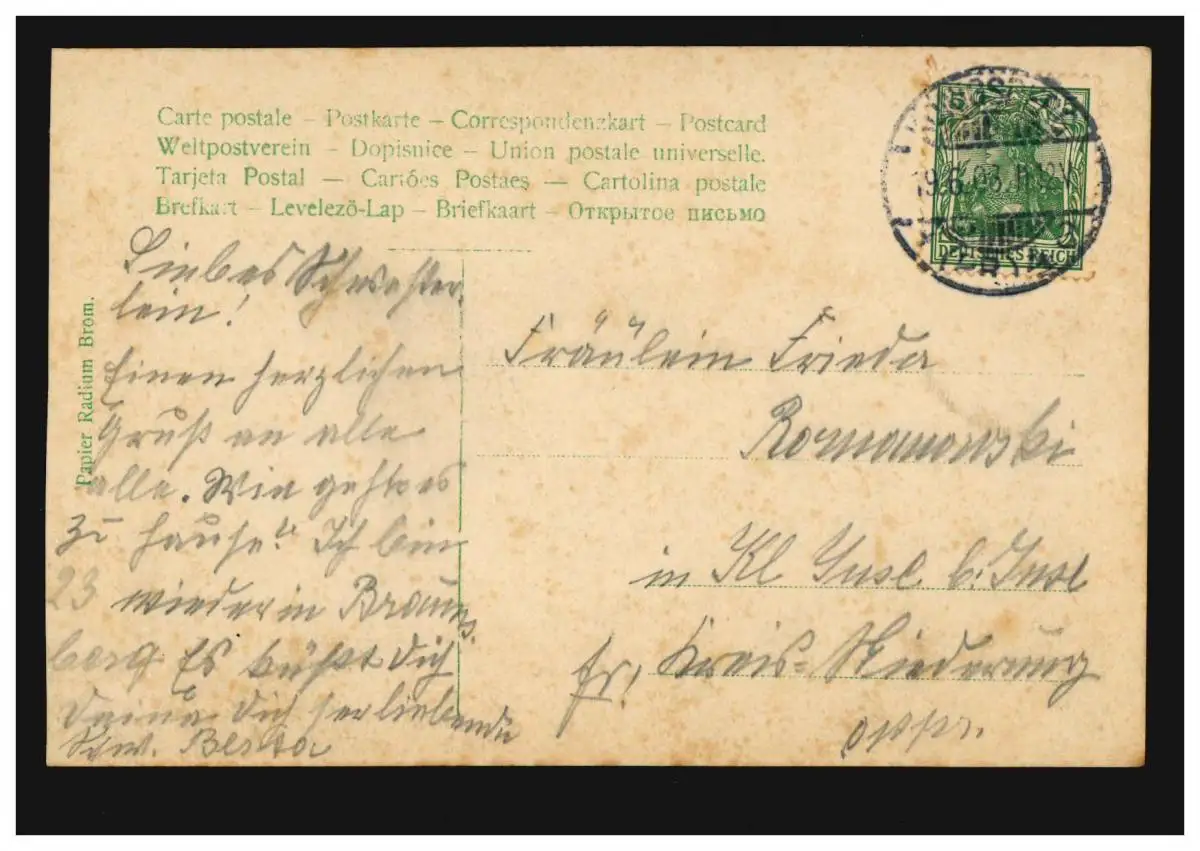 Carte postale – Postkarte – Correspondenzkart – Postcard
Weltpostverein – Dopisnice – Union postale universelle.
Tarjeta Postal — Cartões Postaes — Cartolina postale
Brefkart – Levelezö-Lap – Briefkaart – Открытое письмо
Papier Radium Brom.
19.6.
DEUTSCHES REICH
Liebes Schwester-
lein!
Einen herzlichen
Gruß an alle
alle. Wie geht es
zu Hause? Ich bin
23 wieder in Brauns-
berg Es küßt Dich
Deine Dich liebende
Schw. Berta
Fräulein Frieda
Romanowski
in Kl Inse b. Inse
Kreis-Niederung
fr!
Ostpr.